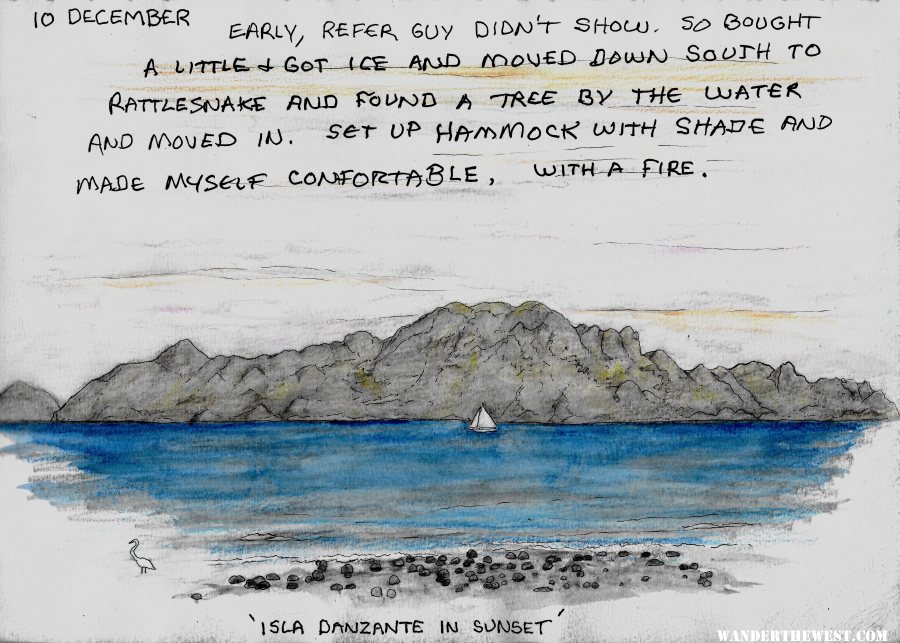 10 DECEMBER
EARLY, REFER GUY DIDN'T SHOW. SO BOUGHT
A LITTLE & GOT ICE AND MOVED DOWN SOUTH TO
RATTLESNAKE AND FOUND A TREE BY THE WATER
AND MOVED IN. SET UP HAMMOCK WITH SHADE AND
MADE MYSELF CONFORTABLE, WITH A FIRE.
'ISLA DANZANTE IN SUNSET'
WANDERTHEWEST.COM